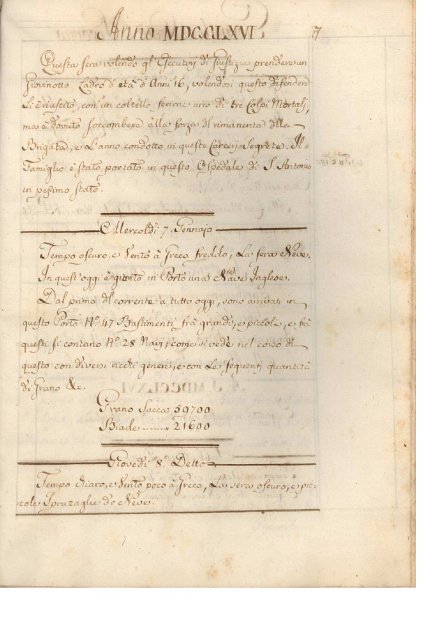 Anno MDCCLXVI 7
Questa sera volendo gl' Esecutori di Giustizia prendere un
Giovinotto Ladro d'età d'Anni 16, volendosi questo difendere
con un coltello ferime uno di tre Colpi Mortali,
ma a dovuto soccombere alla forza del rimanente della
Brigata, e L'anno condotto in queste Carceri Segrete. Il
Famiglio è stato portato in questo Ospedale di S. Antonio
in pesimo stato.
Mercoldì 7. Gennajo
Tempo oscuro, e Vento à Greco freddo, La sera Neve.
In quest'oggi è giunto in Porto una Nave Inglese.
Dal primo del corrente a tutto oggi, sono arrivati in
questo Porto N.º 47 Bastimenti frà grandi, e piccoli, e frà
questi si contano N.º 28 Navi, come si vede nel corso di
questo con diversi ricchi generi, e con Le seguenti quantità
di Grano &c.
Grano Sacca 59700
Biade ........ 21600
Giovedì 8. Detto
Tempo chiaro, e Vento poco à Greco, La sera oscuro, e pic-
cole spruzaglie di Neve.